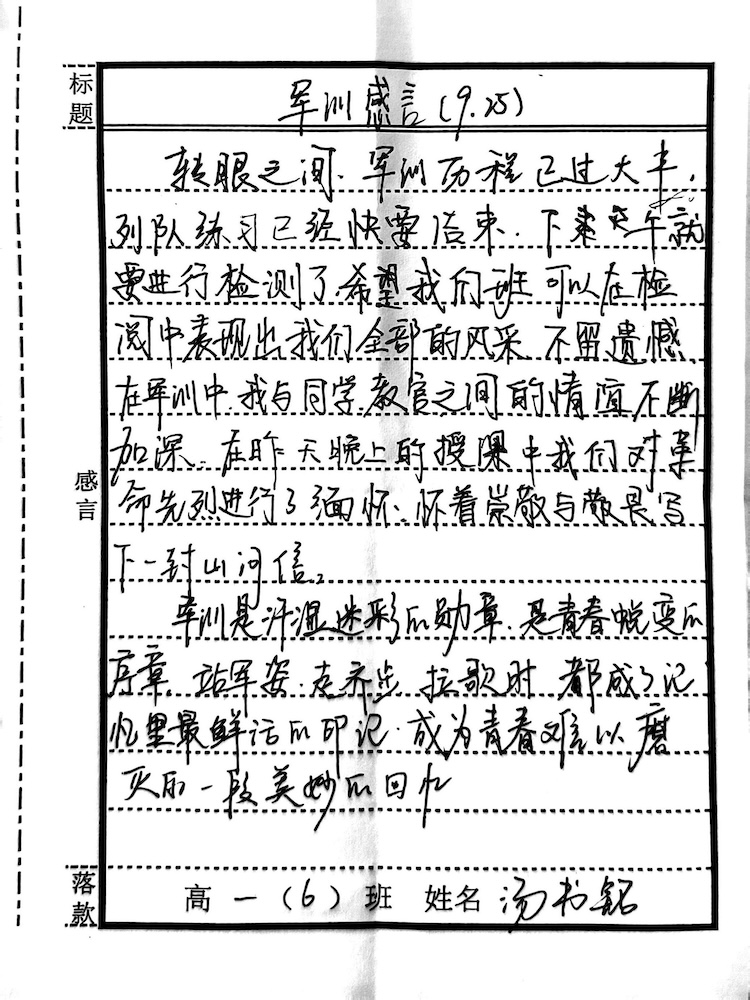 标题
军训感言(9.25)
转眼之间、军训历程已过大半,
列队练习已经快要结束、下来天午就
要进行检测了,希望我们班可以在检
阅中表现出我们全部的风采、不留遗憾
在军训中、我与同学、教官之间的情谊不断
加深、在昨天晚上的授课中我们对革
命先烈进行了缅怀、怀着崇敬与敬畏写
下一封山河信。
感言
军训是汗湿迷彩的勋章、是青春蜕变的
序章、站军姿、走齐步、拉歌时、都成了记
忆里最鲜活的印记、成为青春难以磨
灭的一段美妙的回忆
落款
高一(6)班 姓名 汤书铭